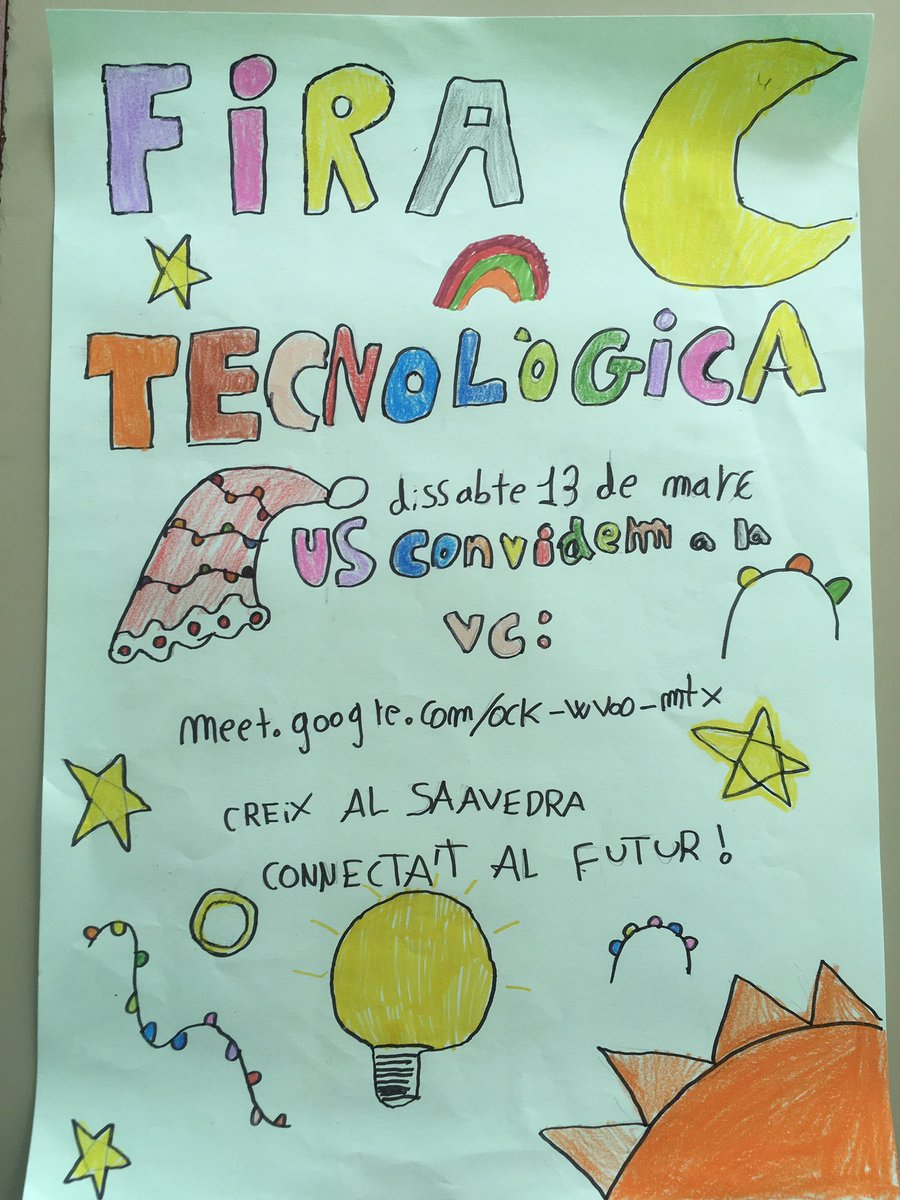 FiRA
TECNOLÒGiCA
dissabte 13 de març
US convidem a la
vc:
meet.google.com/ock-wvoo-mtx
CREiX AL SAAVEDRA
CONNECTA'T AL FUTUR!